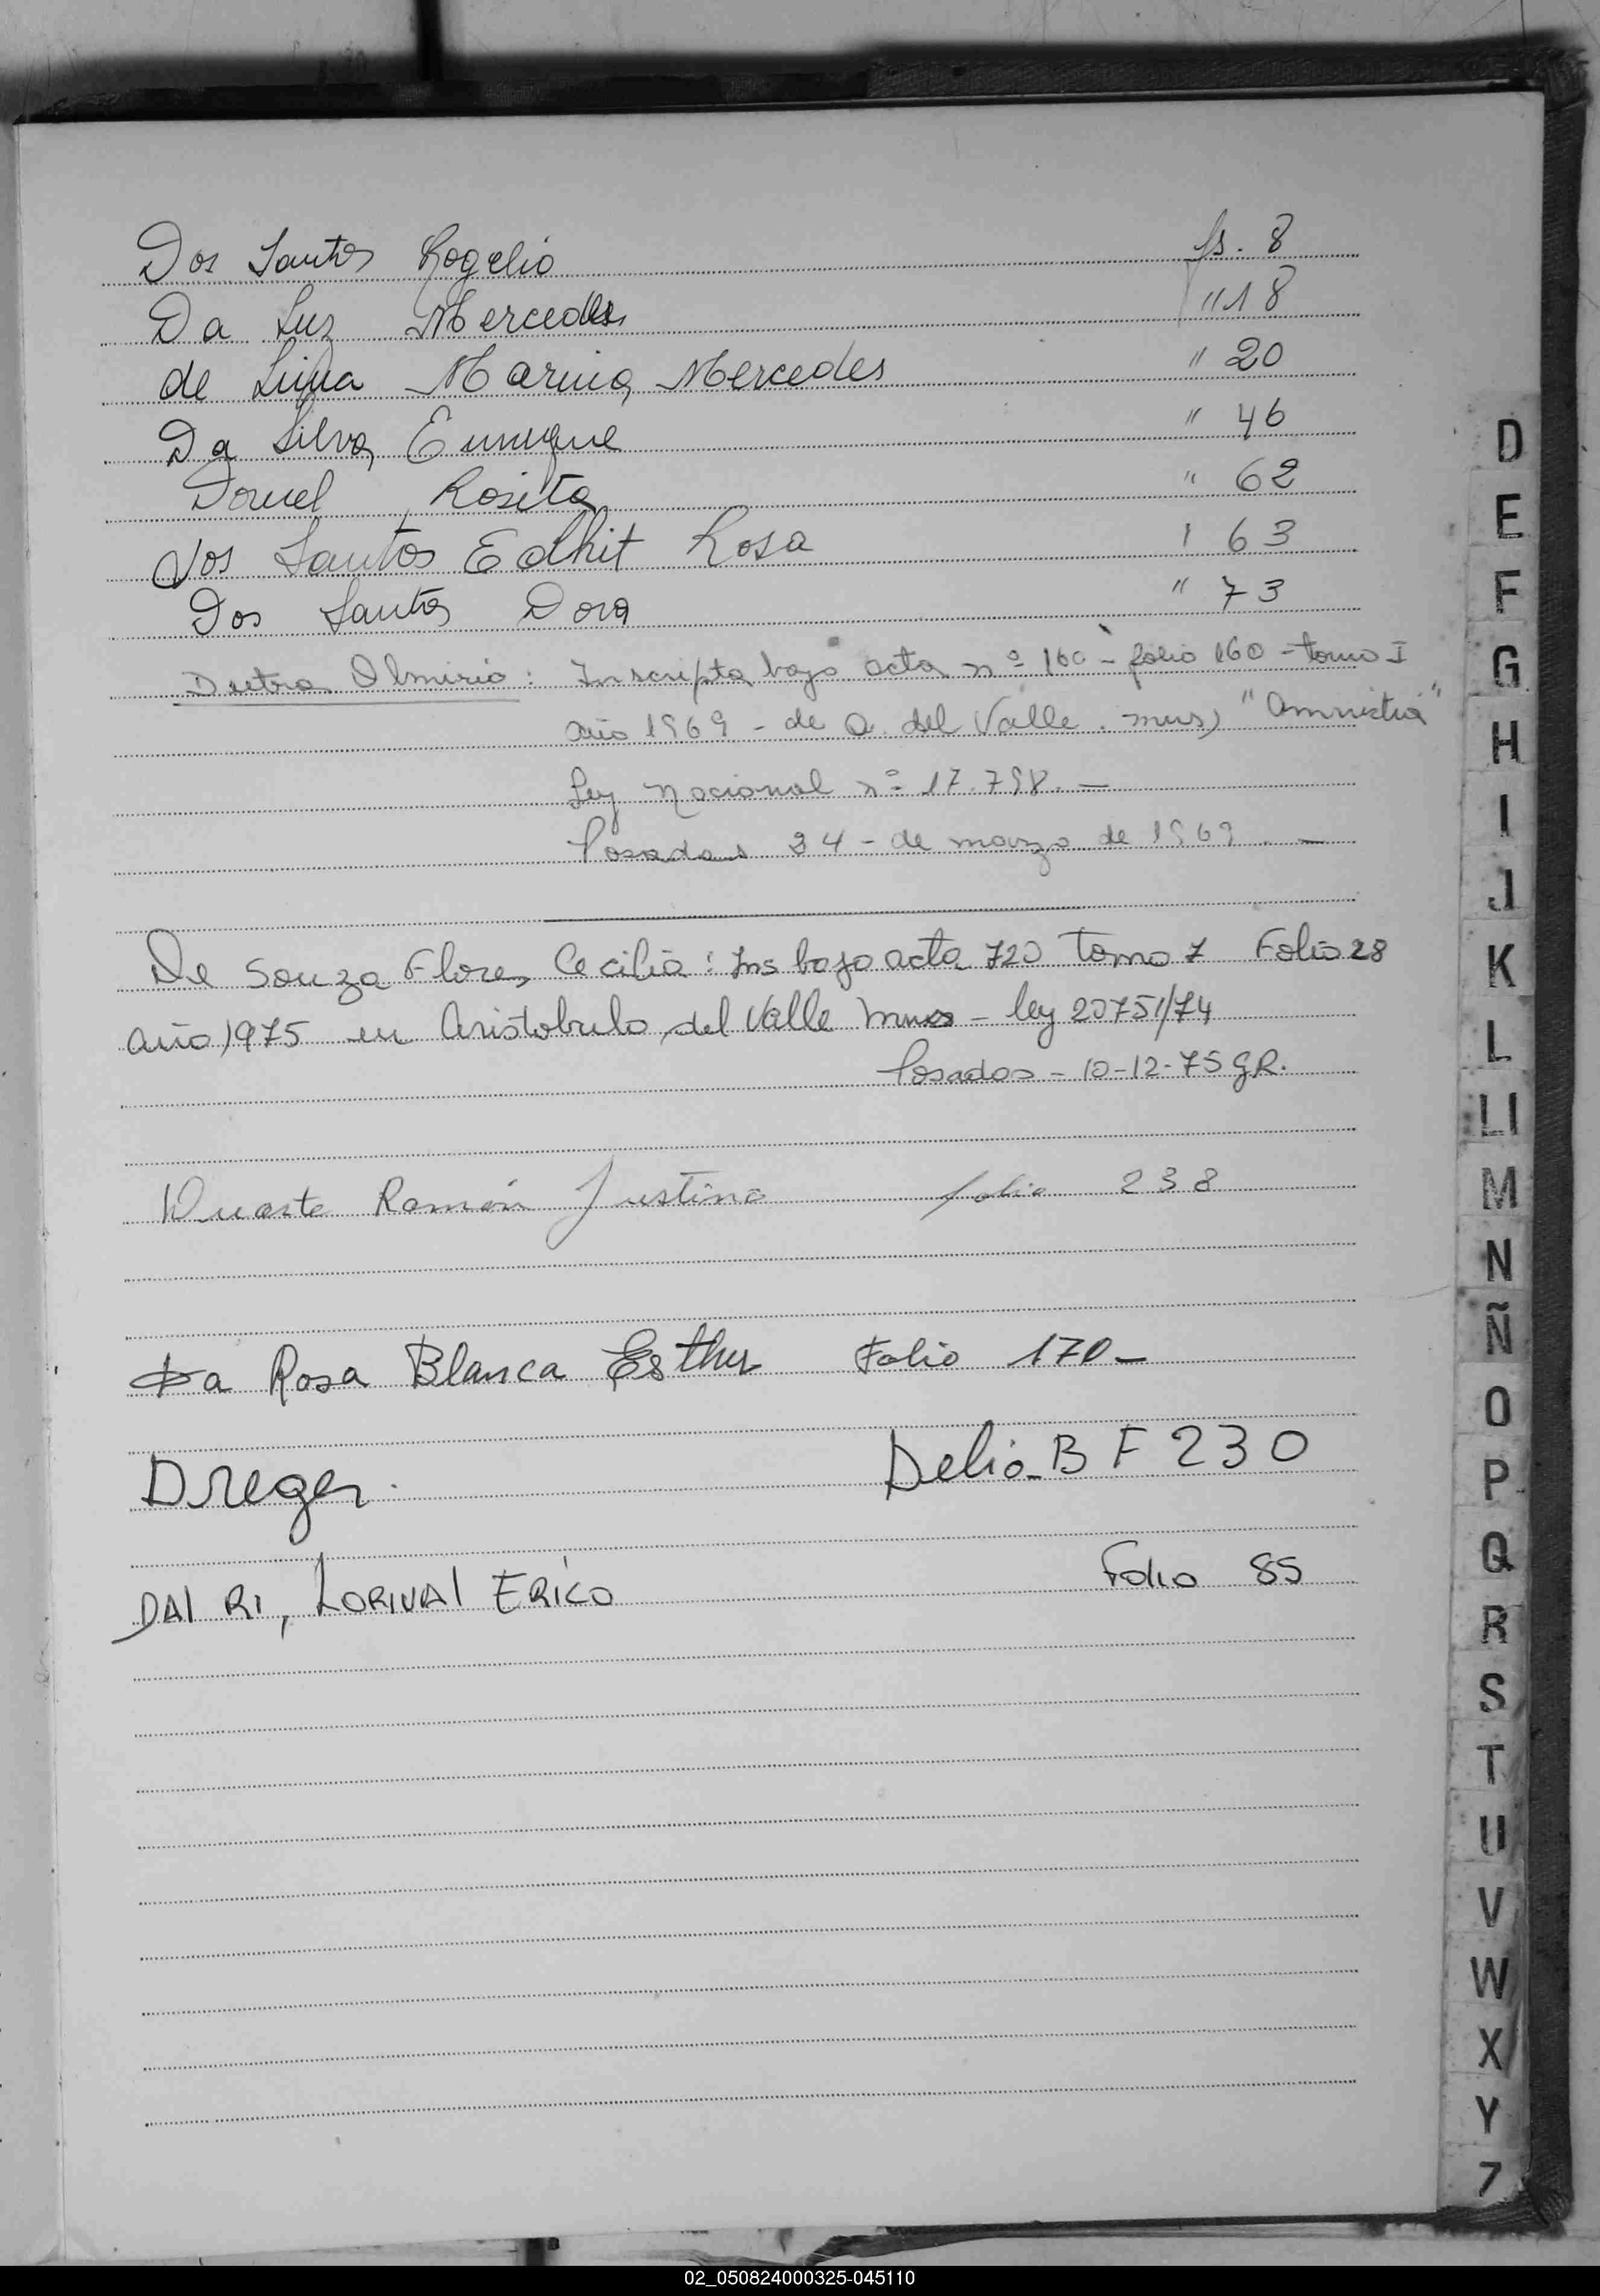 Dos Santos Rogelio fs. 8
Da Luz Mercedes " 18
de Lima Marina Mercedes " 20
Da Silva Enrique " 46
Dornel Rosita " 62
Dos Santos Edhit Rosa " 63
Dos Santos Dora " 73
Dutra Olmirio: Inscripta bajo acta nº 160 - folio 160 - tomo I
año 1969 - de A. del Valle. mnes) "Amnistia"
Ley Nacional nº 17.798. —
Posadas 24 - de marzo de 1969. —
De Souza Flores Cecilia: Ins bajo acta 720 tomo 7 Folio 28
año 1975 en Aristobulo del Valle Mnes - ley 20751/74
Posadas - 10-12-75 GR.
Duarte Ramón Justino folio 238
Da Rosa Blanca Esther Folio 170 -
Dreger. Delio B F 230
DAl Ri, LORIVAl ERICO Folio 85
D
E
F
G
H
I
J
K
L
Ll
M
N
Ñ
O
P
Q
R
S
T
U
V
W
X
Y
Z
02_050824000325-045110